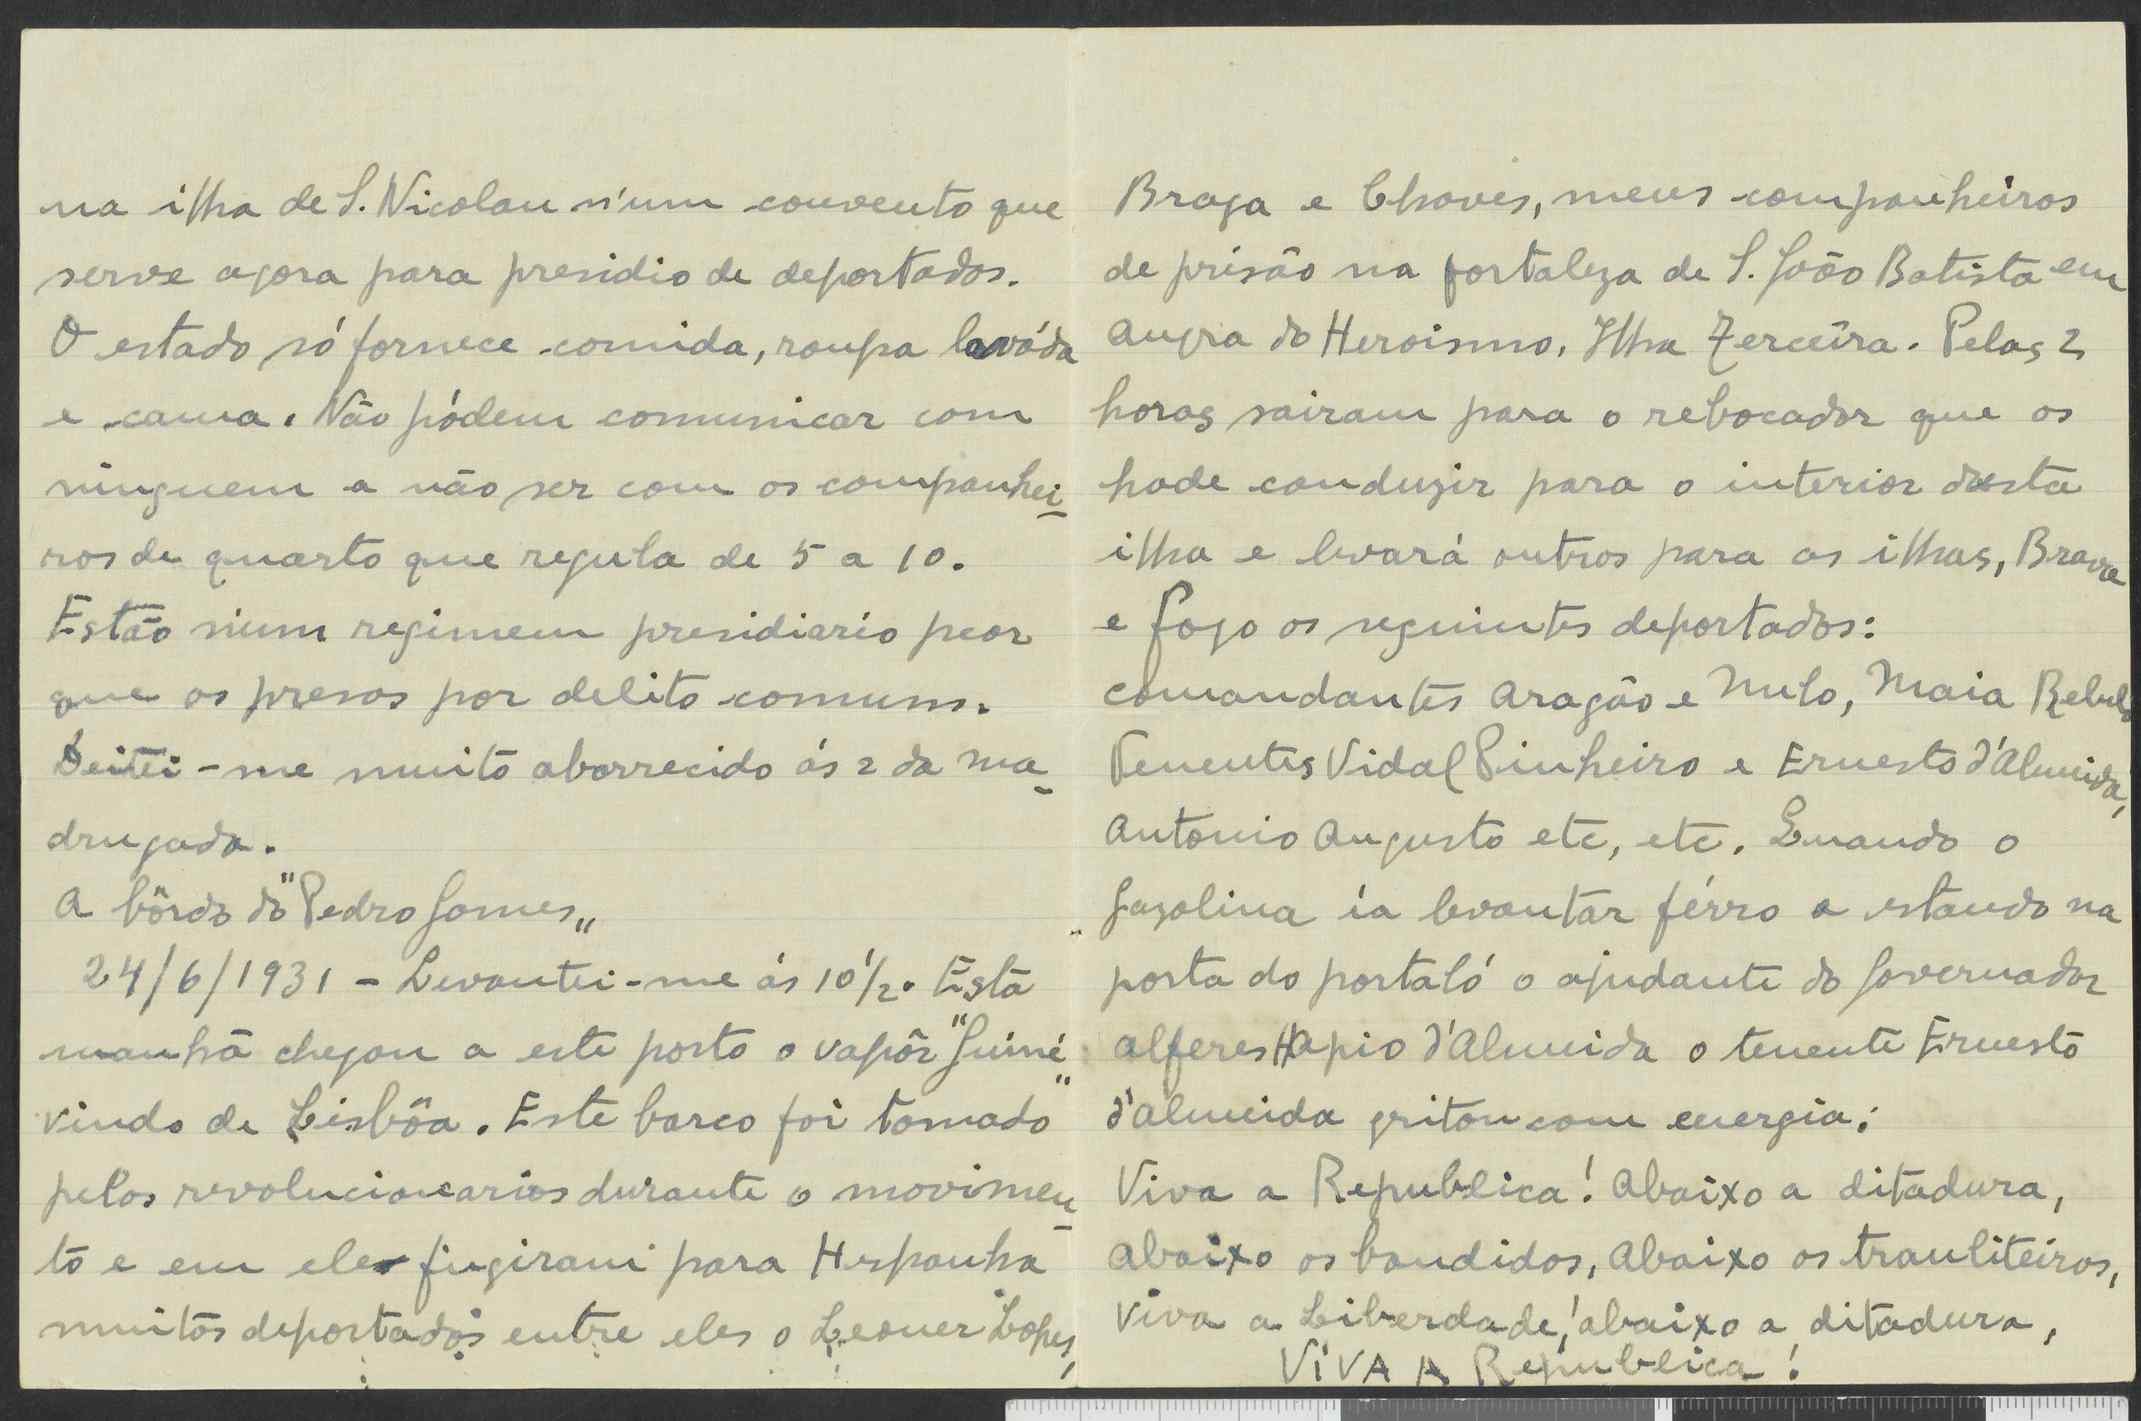 na ilha de S. Nicolau n'um convento que
serve agora para presidio de deportados.
O estado só fornece comida, roupa laváda
e cama. Não pódem comunicar com
ninguem a não ser com os companhei-
ros de quarto que regula de 5 a 10.
Estão n'um regimem presidiario peor
que os presos por delito comum.
Deitei-me muito aborrecido ás 2 da ma-
drugada.
A bôrdo do "Pedro Gomes"
24/6/1931 - Levantei-me ás 10 1/2. Esta
manhã chegou a este porto o vapôr "Guiné"
vindo de Lisbôa. Este barco foi tomado
pelos revolucionarios durante o movimen-
to e em ele fugiram para Hespanha
muitos deportados entre eles o Lopes,
Braga e Chaves, meus companheiros
de prisão na fortaleza de S. João Batista em
Angra do Heroismo, Ilha Terceira. Pelas 2
horas sairam para o rebocador que os
hade conduzir para o interior desta
ilha e levará outros para as ilhas, Brava
e Fogo os seguintes deportados:
comandantes Aragão e Nulo, Maia Rebelo
Tenentes Vidal Pinheiro e Ernesto d'Almeida,
Antonio Augusto etc, etc. Quando o
gazolina ía levantar férro e estando na
porta do portaló o ajudante do Governador
alferes d'Almeida o tenente Ernesto
d'Almeida gritou com energia:
Viva a Republica! Abaixo a ditadura,
abaixo os bandidos, abaixo os trauliteiros,
Viva a Liberdade,! abaixo a ditadura,
VIVA A Republica!